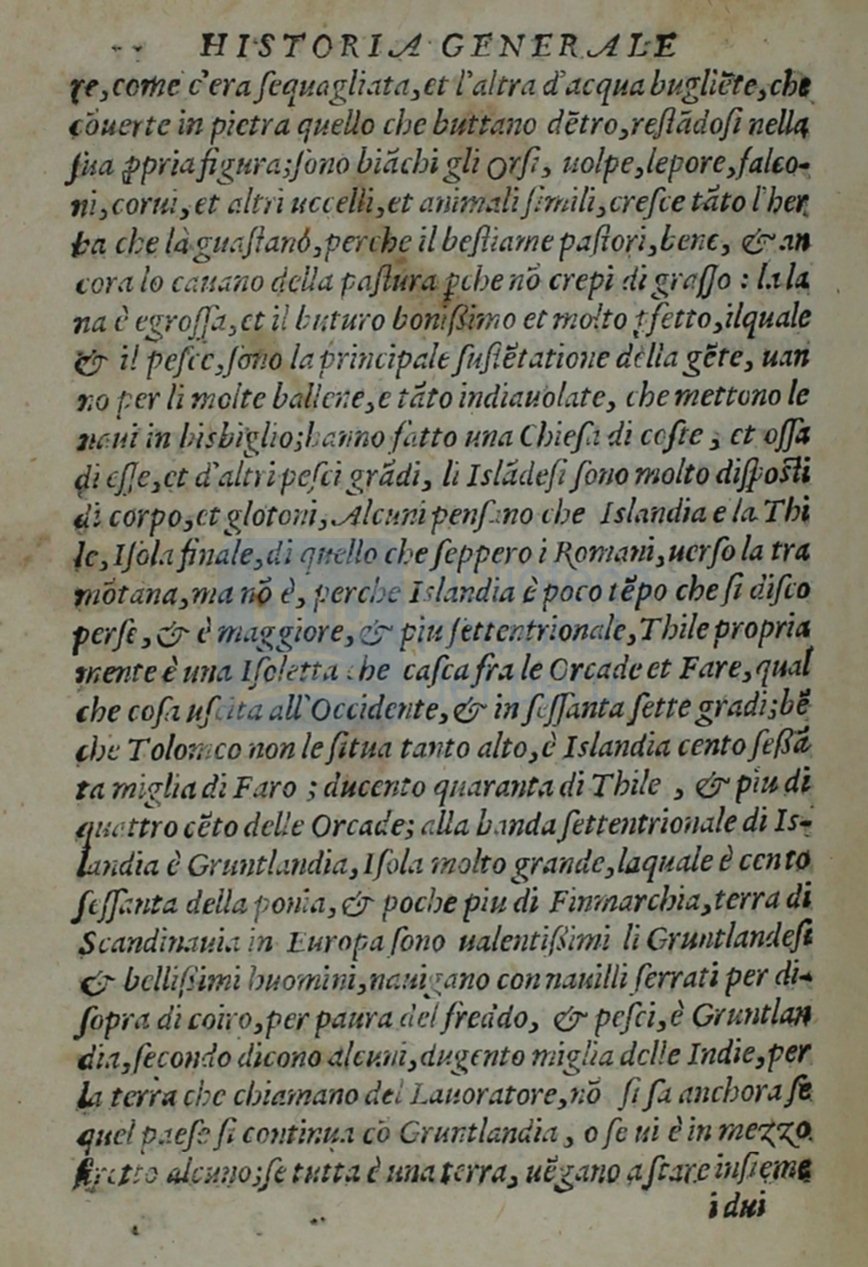 HISTORIA GENERALE
re, come c'era ſequagliata, et l'altra d'acqua bugliẽte, che
cõuerte in pietra quello che buttano dẽtro, reſtãdoſi nella
ſua ꝓpria figura; ſono biãchi gli Orſi, uolpe, lepore, falco-
ni, corui, et altri uccelli, et animali ſimili, creſce tãto l'her
ba che là guaſtanó, perche il beſtiame paſtori, bene, & an
cora lo cauano della paſtura ꝑche nõ crepi di graſſo : la la
na è egroſſa, et il buturo boniſſimo et molto ꝑfetto, ilquale
& il peſce, ſono la principale ſuſtẽtatione della gẽte, uan
no per li molte ballene, e tãto indiauolate, che mettono le
naui in bisbiglio; hanno fatto una Chieſa di coſte, et oſſa
di eſſe, et d'altri peſci grãdi, li Islãdeſi ſono molto diſpoſti
di corpo, et glotoni, Alcuni penſano che Islandia e la Thi
le, Iſola finale, di quello che ſeppero i Romani, uerſo la tra
mõtana, ma nõ è, perche Islandia è poco tẽpo che ſi diſco
perſe, & è maggiore, & piu ſettentrionale, Thile propria
mente è una Iſoletta che caſca fra le Orcade et Fare, qual
che coſa uſcita all'Occidente, & in ſeſſanta ſette gradi; bẽ
che Tolomeo non le ſitua tanto alto, è Islandia cento ſeſſã
ta miglia di Faro ; ducento quaranta di Thile , & piu di
quattro cẽto delle Orcade; alla banda ſettentrionale di Is-
landia è Gruntlandia, Iſola molto grande, laquale è cento
ſeſſanta della ponia, & poche piu di Finmarchia, terra di
Scandinauia in Europa ſono ualentiſſimi li Gruntlandeſi
& belliſſimi huomini, nauigano con nauilli ſerrati per di-
ſopra di coiro, per paura del freddo, & peſci, è Gruntlan
dia, ſecondo dicono alcuni, dugento miglia delle Indie, per
la terra che chiamano del Lauoratore, nõ ſi ſa anchora ſe
quel paeſe ſi continua cõ Gruntlandia, o ſe ui è in mezzo
ſtretto alcuno; ſe tutta è una terra, uẽgano a ſtare inſieme
i dui